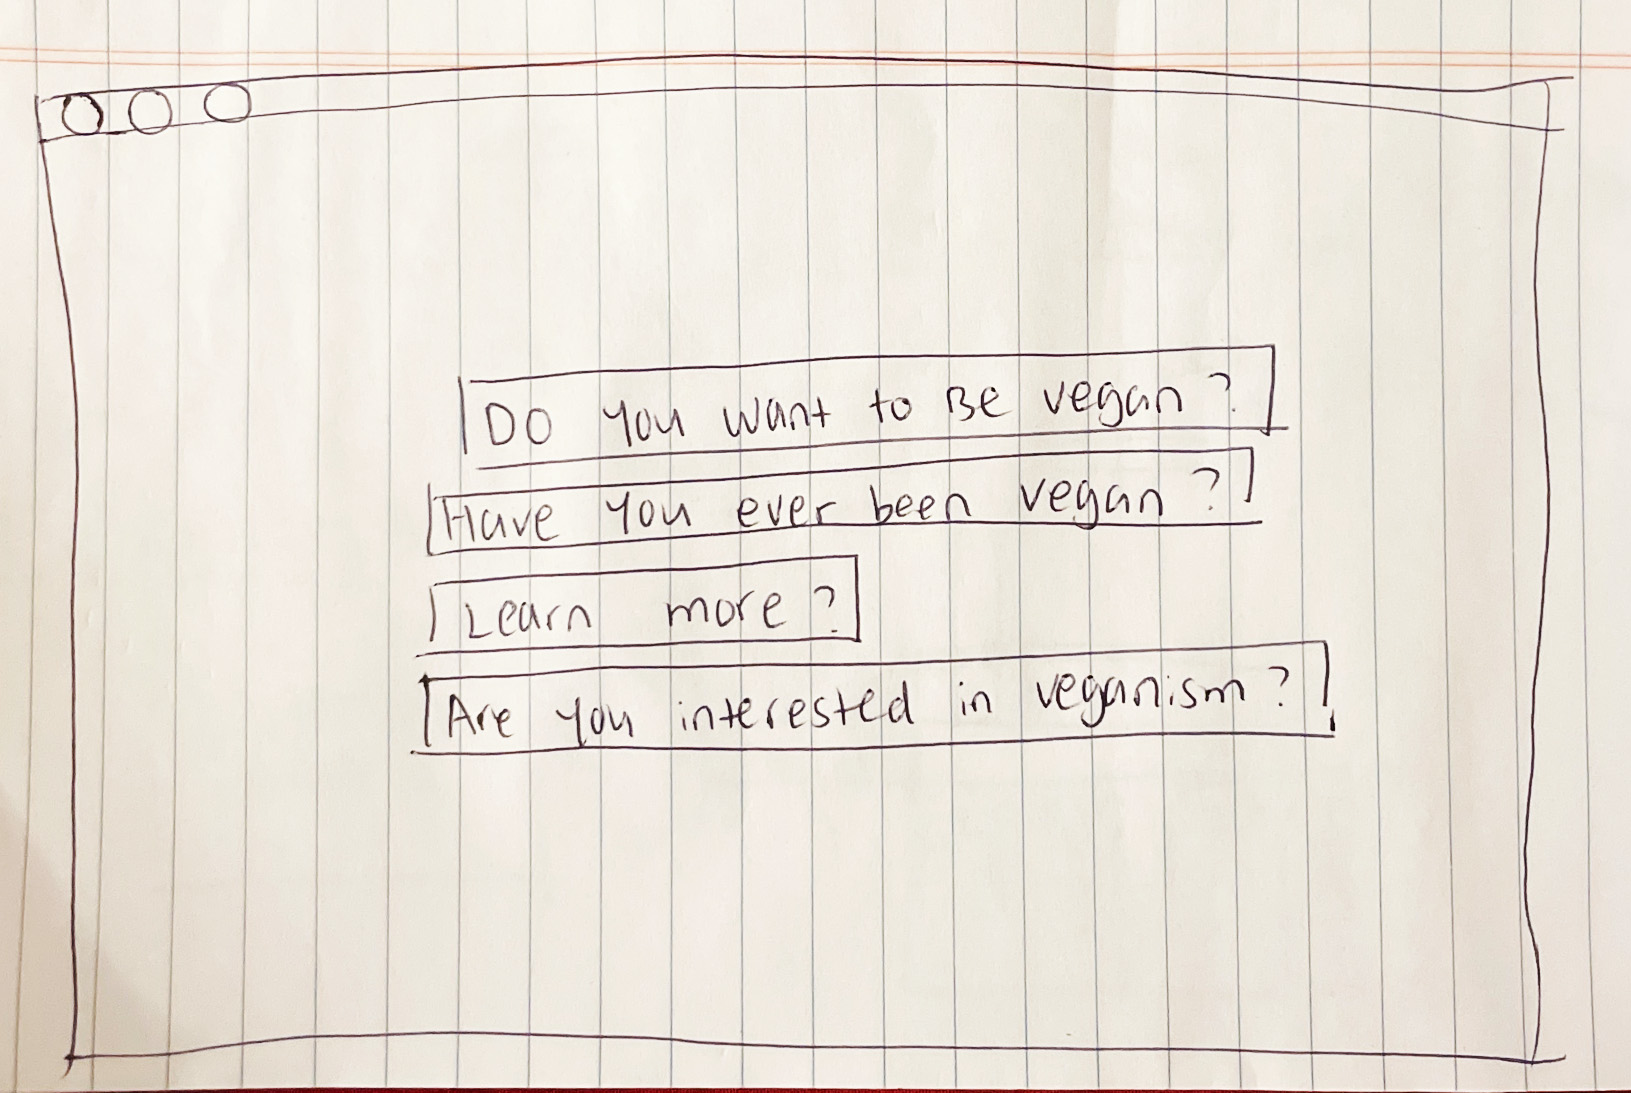 Do you want to Be vegan?
Have you ever been vegan?
Learn more?
Are you interested in veganism?